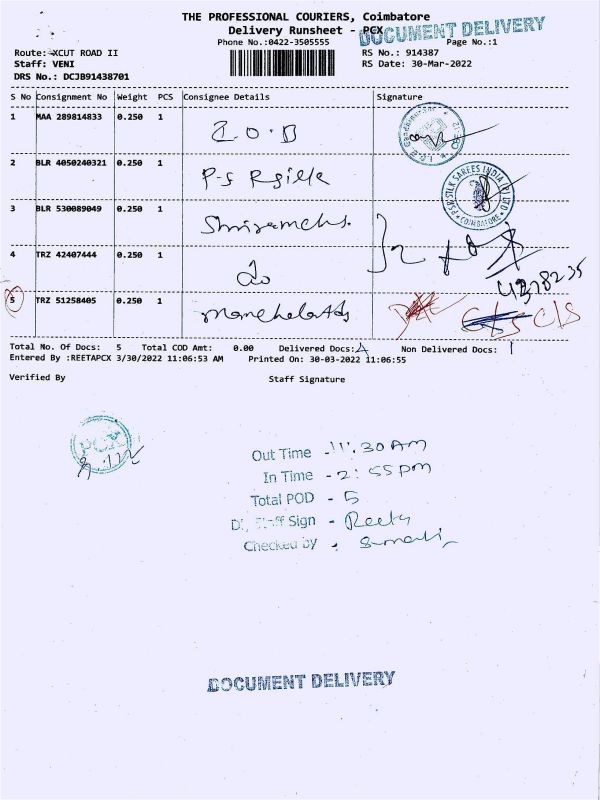 THE PROFESSIONAL COURIERS, Coimbatore
Delivery Runsheet - PCX
DOCUMENT DELIVERY
Phone No.:0422-3505555 Page No.:1
Route: XCUT ROAD II RS No.: 914387
Staff: VENI RS Date: 30-Mar-2022
DRS No.: DCJB91438701
S No Consignment No Weight PCS Consignee Details Signature
1 MAA 289814833 0.250 1 I.O.B
2 BLR 4050240321 0.250 1 P-S
PSR SILK SAREES INDIA (P) LTD
COIMBATORE
3 BLR 530089049 0.250 1
4 TRZ 42407444 0.250 1 do
5 TRZ 51258405 0.250 1 C/S
Total No. Of Docs: 5 Total COD Amt: 0.00 Delivered Docs: 4 Non Delivered Docs: 1
Entered By :REETAPCX 3/30/2022 11:06:53 AM Printed On: 30-03-2022 11:06:55
Verified By Staff Signature
PCX
Out Time - 11:30 AM
In Time - 2:55 pm
Total POD - 5
Staff Sign - Reeta
Checked by -
DOCUMENT DELIVERY